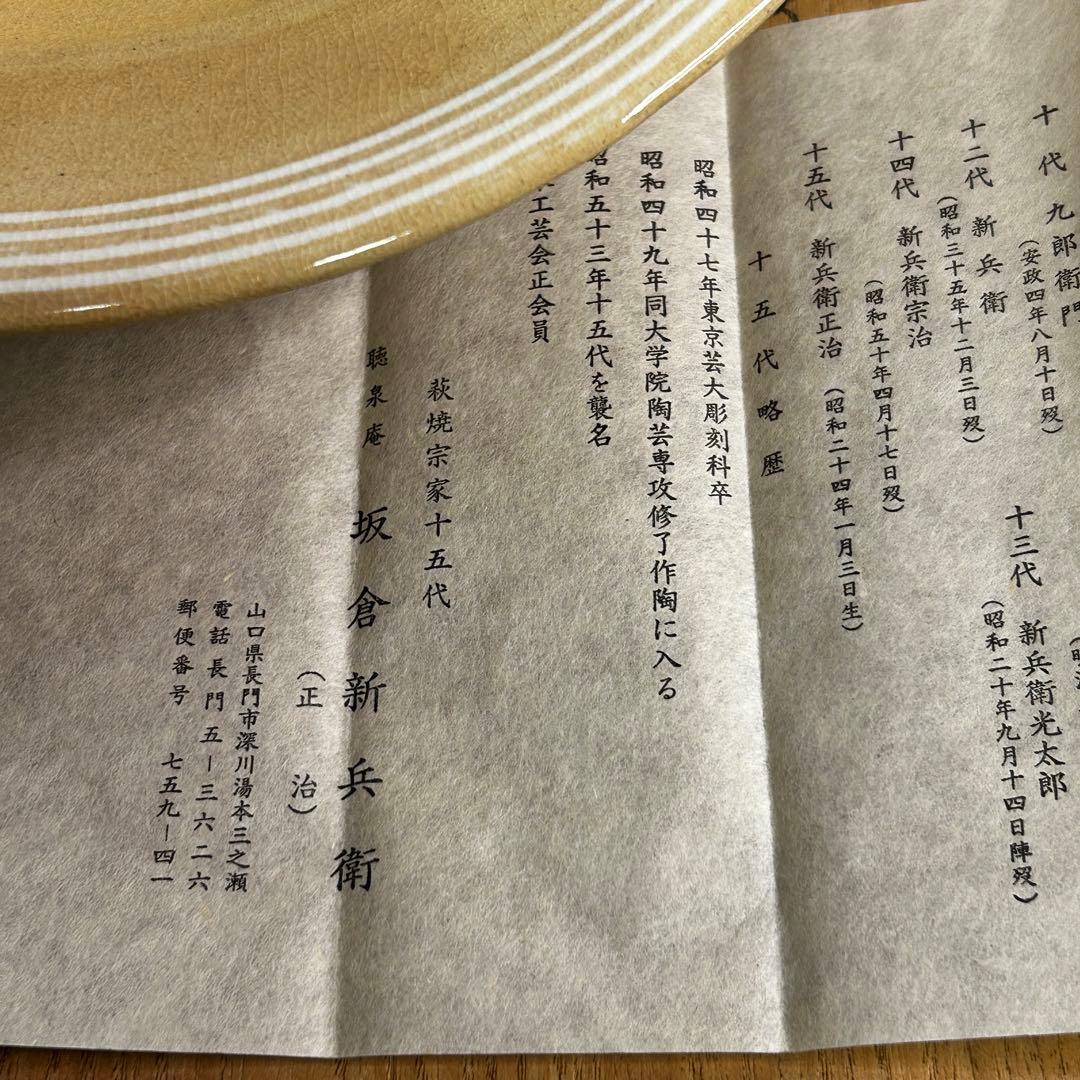 十代 九郎衛門
（安政四年八月十日歿）
十三代 新兵衛光太郎
（昭和二十年九月十四日陣歿）
十二代 新兵衛
（昭和三十五年十二月三日歿）
十四代 新兵衛宗治
（昭和五十年四月十七日歿）
十五代 新兵衛正治
（昭和二十四年一月三日生）
十五代略歴
昭和四十七年東京芸大彫刻科卒
昭和四十九年同大学院陶芸専攻修了作陶に入る
昭和五十三年十五代を襲名
工芸会正会員
萩焼宗家十五代
聴泉庵 坂倉新兵衛
（正治）
山口県長門市深川湯本三之瀬
電話長門五－三六二六
郵便番号 七五九－四一